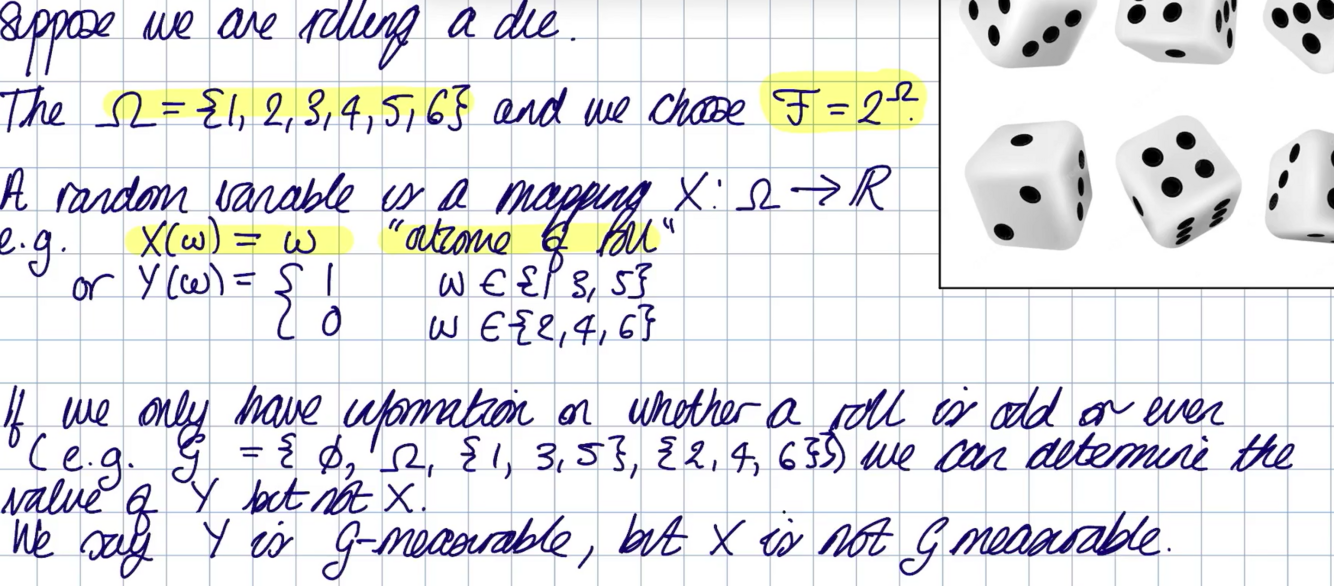 Suppose we are rolling a die.
The Ω = {1, 2, 3, 4, 5, 6} and we choose ℱ = 2^Ω.
A random variable is a mapping X: Ω → ℝ
e.g. X(ω) = ω "outcome of roll"
or Y(ω) = { 1 ω ∈ {1, 3, 5}
{ 0 ω ∈ {2, 4, 6}
If we only have information on whether a roll is odd or even
(e.g. 𝒢 = { ∅, Ω, {1, 3, 5}, {2, 4, 6}}) we can determine the
value of Y but not X.
We say Y is 𝒢-measurable, but X is not 𝒢 measurable.